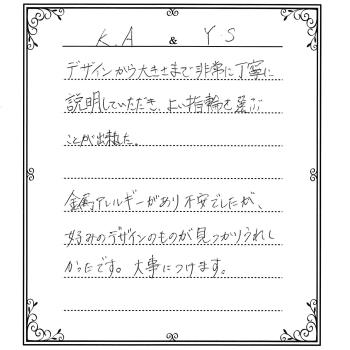 K.A & Y.S
デザインから大きさまで非常に丁寧に
説明していただき、よい指輪を選ぶ
ことが出来ました。
金属アレルギーがあり不安でしたが、
好みのデザインのものが見つかりうれし
かったです。大事につけます。